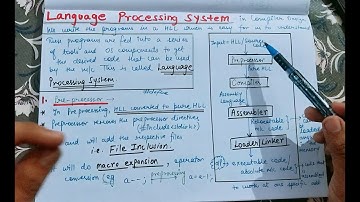 Language Processing System - in Compiler Design
We write the programs in a HLL which is easy for us to
These programs are fed into a series
of tools and OS components to get
the desired code that can be used
by the m/c. This is called Language
Processing System
Pre-processor
In Preprocessing, HLL converted to pure HLL
Preprocessor removes the preprocessor directives
(#include<stdio.h>)
and will add the respective files
i.e. File Inclusion
will do macro expansion, operator
conversion (eg a--; preprocessing a=a-1;
Input - HLL / Source code
Pure HLL
Compiler
Assembly
Language
Assembler
Relocatable
m/c code
Loader/Linker
o/p executable code /
absolute m/c code
to work at one specific add